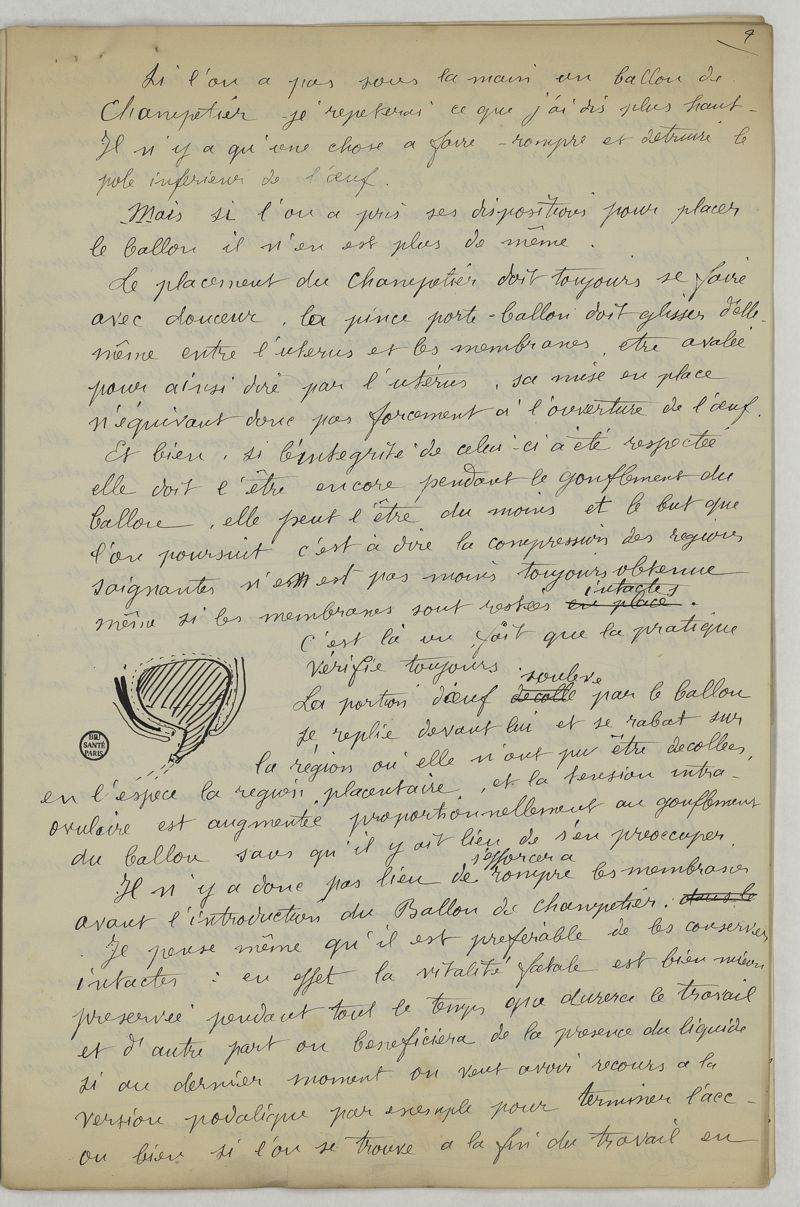 9
Si l'on a pas sous la main un ballon de
Champetier je repeterai ce que j'ai dis plus haut -
Il n'y a qu'une chose a faire - rompre et detruire le
pole inferieur de l'œuf.
Mais si l'on a pris ses dispositions pour placer
le ballon il n'en est plus de même.
Le placement du Champetier doit toujours se faire
avec douceur, la pince porte-ballon doit glisser d'elle-
même entre l'uterus et les membranes, etre avalée
pour ainsi dire par l'utérus, sa mise en place
n'équivaut donc pas forcement à l'ouverture de l'œuf.
Et bien, si l'intégrité de celui-ci a été respectée
elle doit l'être encore pendant le gonflement du
ballon, elle peut l'être du moins et le but que
l'on poursuit c'est à dire la compression des regions
saignantes n'en est pas moins toujours obtenue
intactes
même si les membranes sont restées en place.
C'est là un fait que la pratique
vérifie toujours.
souleve
La portion d'œuf decollé par le ballon
se replie devant lui et se rabat sur
la région où elle n'ont pu être decollees,
en l'espèce la region placentaire, et la tension intra-
ovulaire est augmentée proportionnellement au gonflement
du ballon sans qu'il y ait lieu de s'en preoccuper.
s'efforcer a
Il n'y a donc pas lieu de rompre les membranes
avant l'introduction du Ballon de Champetier. dans le
Je pense même qu'il est preferable de les conserver
intactes : en effet la vitalité fœtale est bien mieux
preservée pendant tout le temps que durera le travail
et d'autre part on beneficiera de la presence du liquide
si au dernier moment on veut avoir recours a la
version podalique par exemple pour terminer l'acc -
ou bien si l'on se trouve a la fin du travail en
BIU
SANTÉ
PARIS